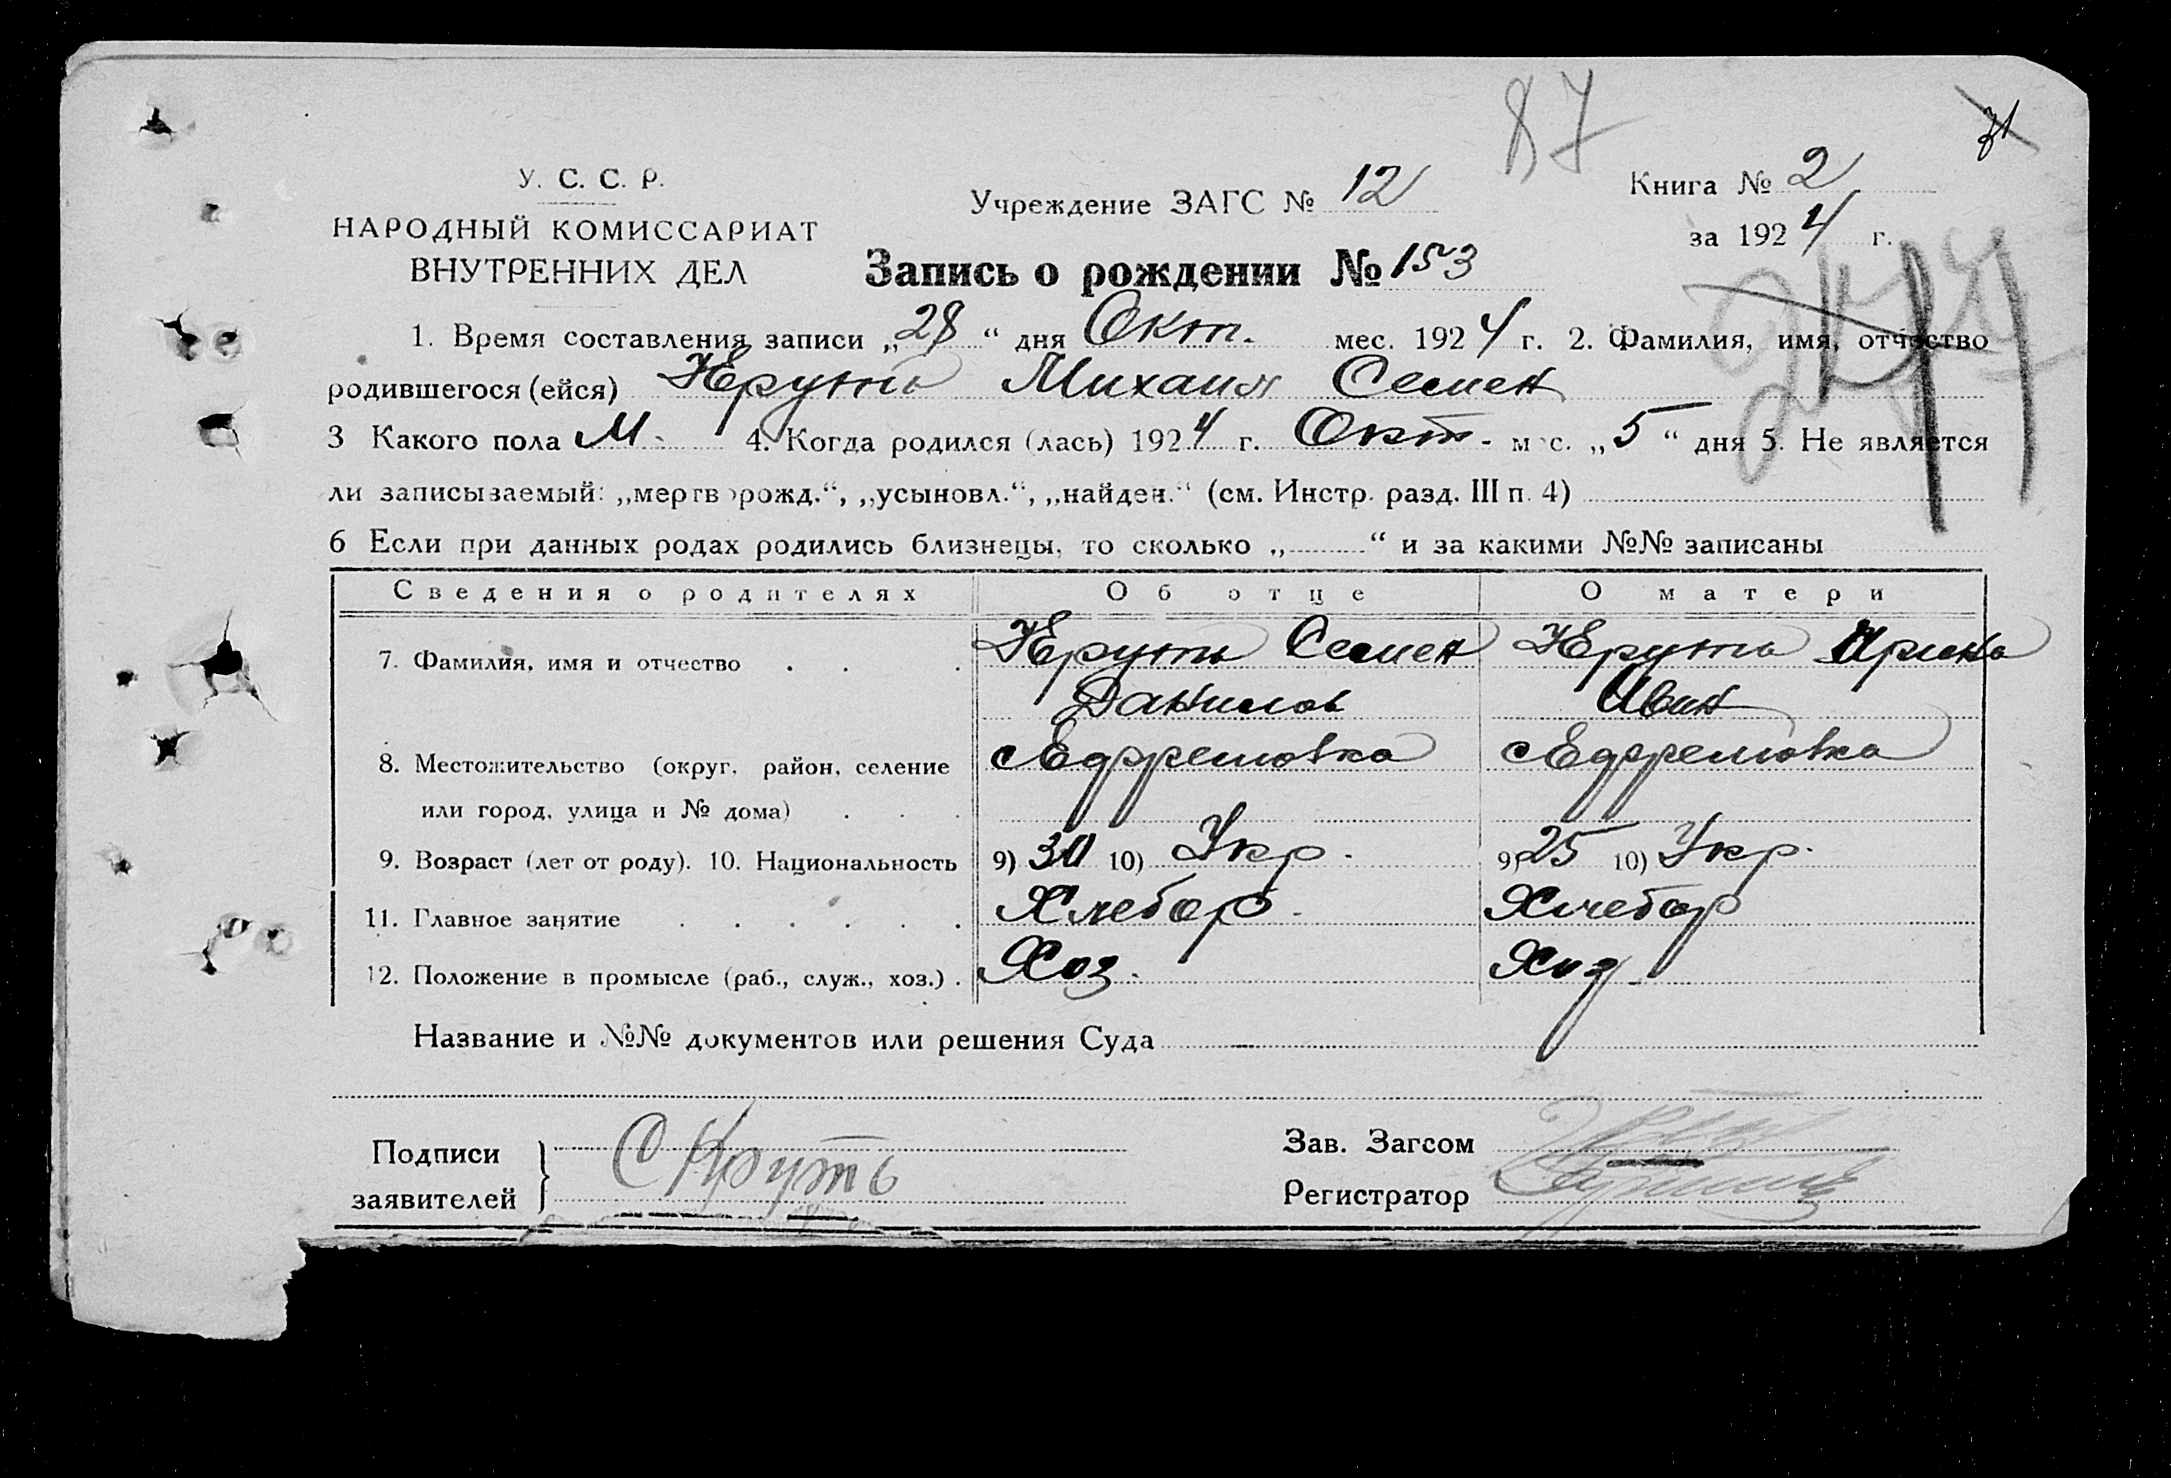 87
31
У. С. С. Р.
НАРОДНЫЙ КОМИССАРИАТ
ВНУТРЕННИХ ДЕЛ
Учреждение ЗАГС № 12
Книга № 2
за 1924 г.
Запись о рождении № 153
1. Время составления записи „28“ дня Окт. мес. 1924 г. 2. Фамилия, имя, отчество
родившегося (ейся) Круть Михаил Семен
3 Какого пола М. 4. Когда родился (лась) 1924 г. Окт. мес. „5“ дня 5. Не является
ли записываемый: „мертворожд.“, „усыновл.“, „найден.“ (см. Инстр. разд. III п. 4)
6 Если при данных родах родились близнецы, то сколько „ “ и за какими №№ записаны
Сведения о родителях Об отце О матери
7. Фамилия, имя и отчество . . . Круть Семен Круть Ирина
Данилов Иван
8. Местожительство (округ, район, селение с Ефремовка с Ефремовка
или город, улица и № дома) . . .
9. Возраст (лет от роду). 10. Национальность 9) 30 10) Укр. 9) 25 10) Укр.
11. Главное занятие . . . . . . Хлебор. Хлебор
12. Положение в промысле (раб., служ., хоз.) . Хоз. Хоз
Название и №№ документов или решения Суда —
Подписи
заявителей
С Круть
Зав. Загсом
Регистратор